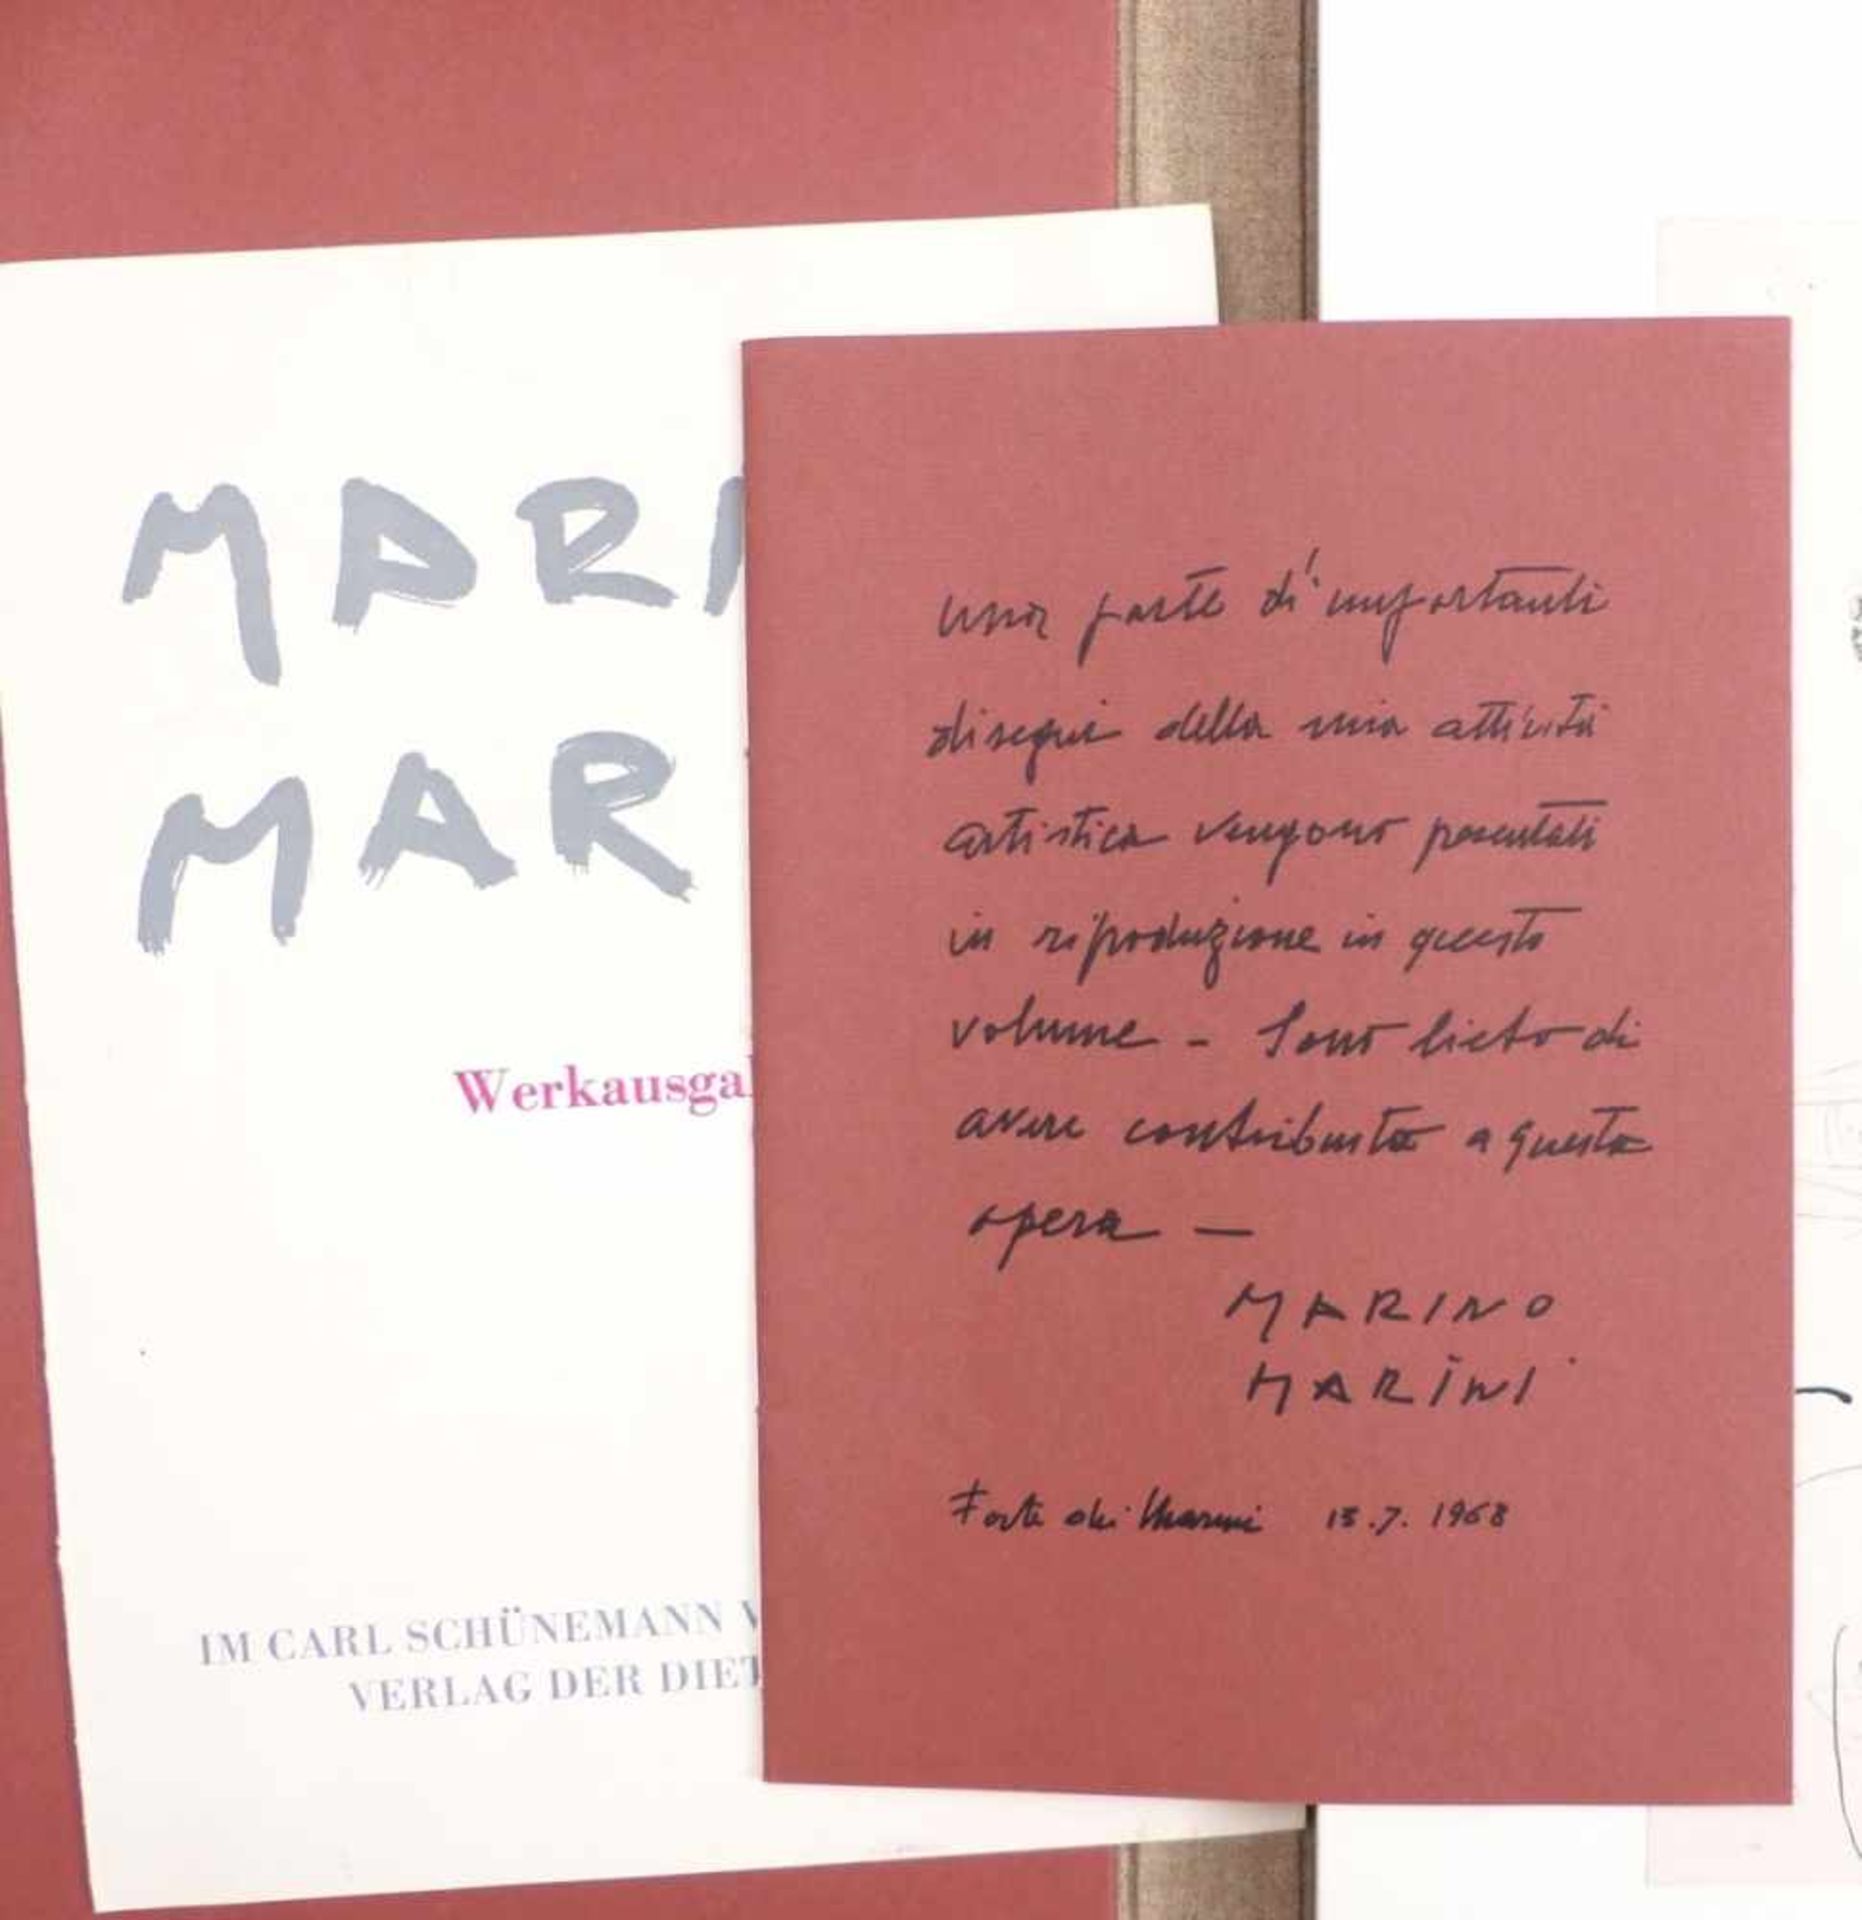 MARI
MAR
Werkausga
IM CARL SCHÜNEMANN V
VERLAG DER DIET
una parte di importanti
disegni della mia attività
artistica vengono presentati
in riproduzione in questo
volume – Sono lieto di
avere contribuito a questa
opera –
MARINO
MARINI
Forte dei Marmi 15.7.1968